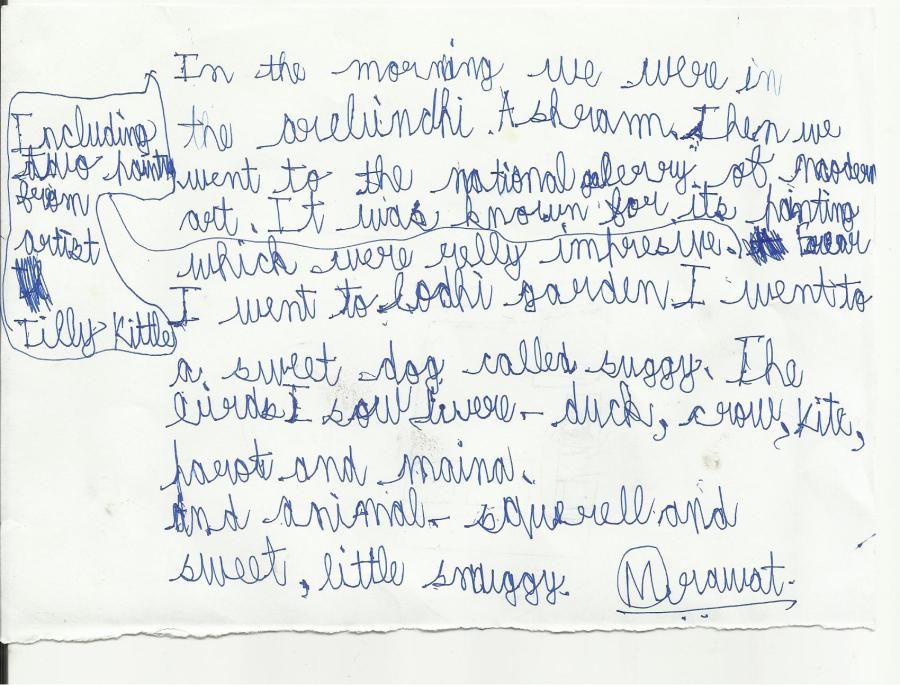 In the morning we were in
the orebindhi. Ashram. Then we
went to the national galerry of moodern
art. It was known for its painting
which were relly impresive.
I went to Lodhi garden. I went to
a sweet dog called suggy. The
birds I sow were - duck, crow, kite,
parot and maina.
And animal - squerell and
sweet, little snuggy.
Mrawat.
Including
two paintin
from
artist
Tilly Kittle